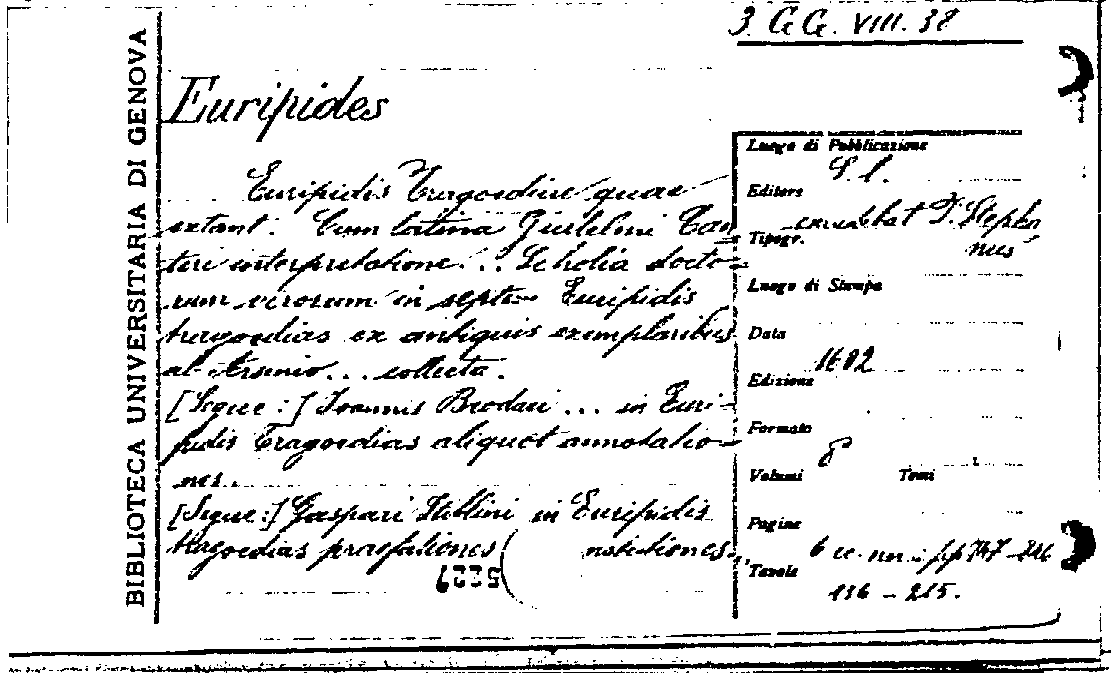 3. G G. VIII. 38
BIBLIOTECA UNIVERSITARIA DI GENOVA
Euripides
Euripidis Tragoediae quae
extant. Cum latina Gulielmi Can
teri interpretatione... Scholia docto-
rum virorum in septem Euripidis
tragoedias ex antiquis exemplaribus
ab Arsenio... collecta.
[Segue:] Ioannis Brodaei... in Euri-
pidis Tragoedias aliquot annotatio-
nes.
[Segue:] Gaspari Stiblini in Euripidis
tragoedias praefationes
Luogo di Pubblicazione
S. l.
Editore
excudebat P. Stepha
Tipogr.
nus
Luogo di Stampa
Data
1602
Edizione
Formato
8
Volumi Tomi
Pagine
6 cc. nn. pp 747-
Tavole
136 - 215.